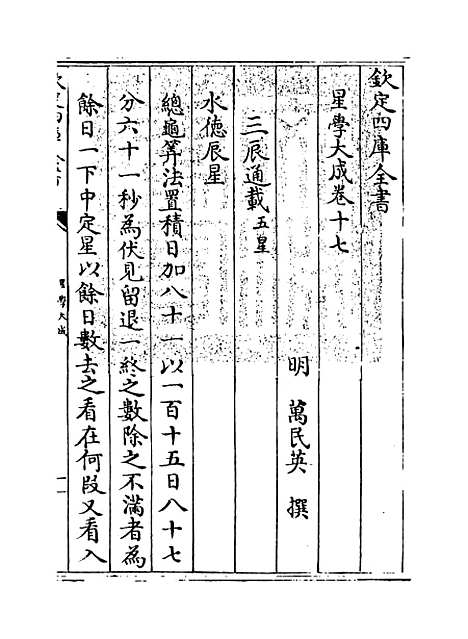 欽定四庫全書
星學大成卷十七
明 萬民英 撰
三辰通載五星
水德辰星
總龜筭法置積日加八十一以一百十五日八十七
分六十一秒為伏見留退一終之數除之不滿者為
餘日一下中定星以餘日數去之看在何段又看入
星學大成
一